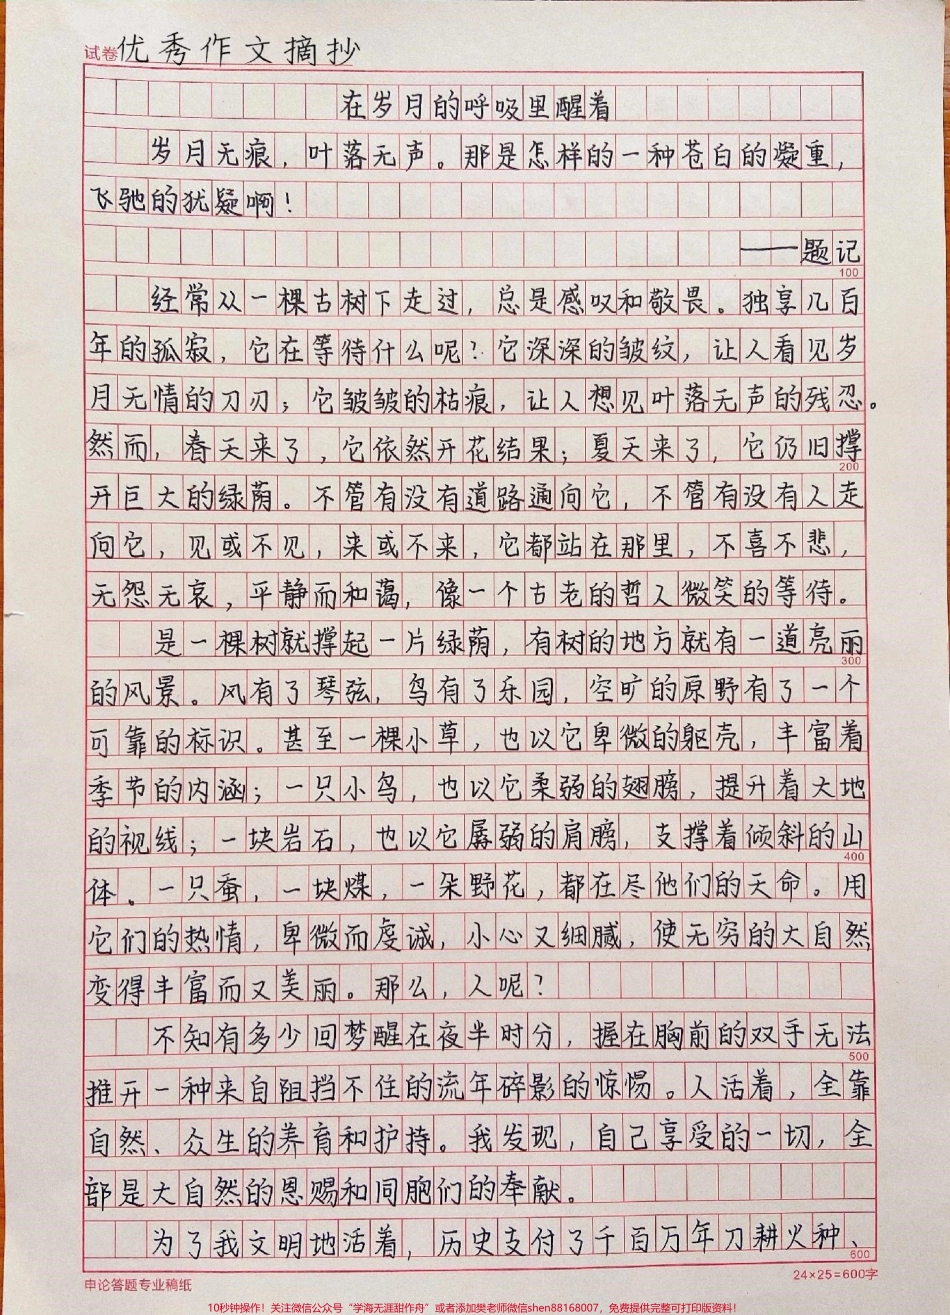 试卷优秀作文摘抄
在岁月的呼吸里醒着
岁月无痕，叶落无声。那是怎样的一种苍白的凝重，
飞驰的犹疑啊！
——题记
100
经常从一棵古树下走过，总是感叹和敬畏。独享几百
年的孤寂，它在等待什么呢？它深深的皱纹，让人看见岁
月无情的刀刃；它皱皱的枯痕，让人想见叶落无声的残忍。
然而，春天来了，它依然开花结果；夏天来了，它仍旧撑
200
开巨大的绿荫。不管有没有道路通向它，不管有没有人走
向它，见或不见，来或不来，它都站在那里，不喜不悲，
无怨无哀，平静而和蔼，像一个古老的哲人微笑的等待。
是一棵树就撑起一片绿荫，有树的地方就有一道亮丽
300
的风景。风有了琴弦，鸟有了乐园，空旷的原野有了一个
可靠的标识。甚至一棵小草，也以它卑微的躯壳，丰富着
季节的内涵；一只小鸟，也以它柔弱的翅膀，提升着大地
的视线；一块岩石，也以它孱弱的肩膀，支撑着倾斜的山
400
体。一只蚕，一块煤，一朵野花，都在尽他们的天命。用
它们的热情，卑微而虔诚，小心又细腻，使无穷的大自然
变得丰富而又美丽。那么，人呢？
不知有多少回梦醒在夜半时分，握在胸前的双手无法
500
推开一种来自阻挡不住的流年碎影的惊惕。人活着，全靠
自然、众生的养育和护持。我发现，自己享受的一切，全
部是大自然的恩赐和同胞们的奉献。
为了我文明地活着，历史支付了千百万年刀耕火种、
600
申论答题专业稿纸
24×25=600字
10秒钟操作！关注微信公众号“学海无涯甜作舟”或者添加樊老师微信shen88168007，免费提供完整可打印版资料！